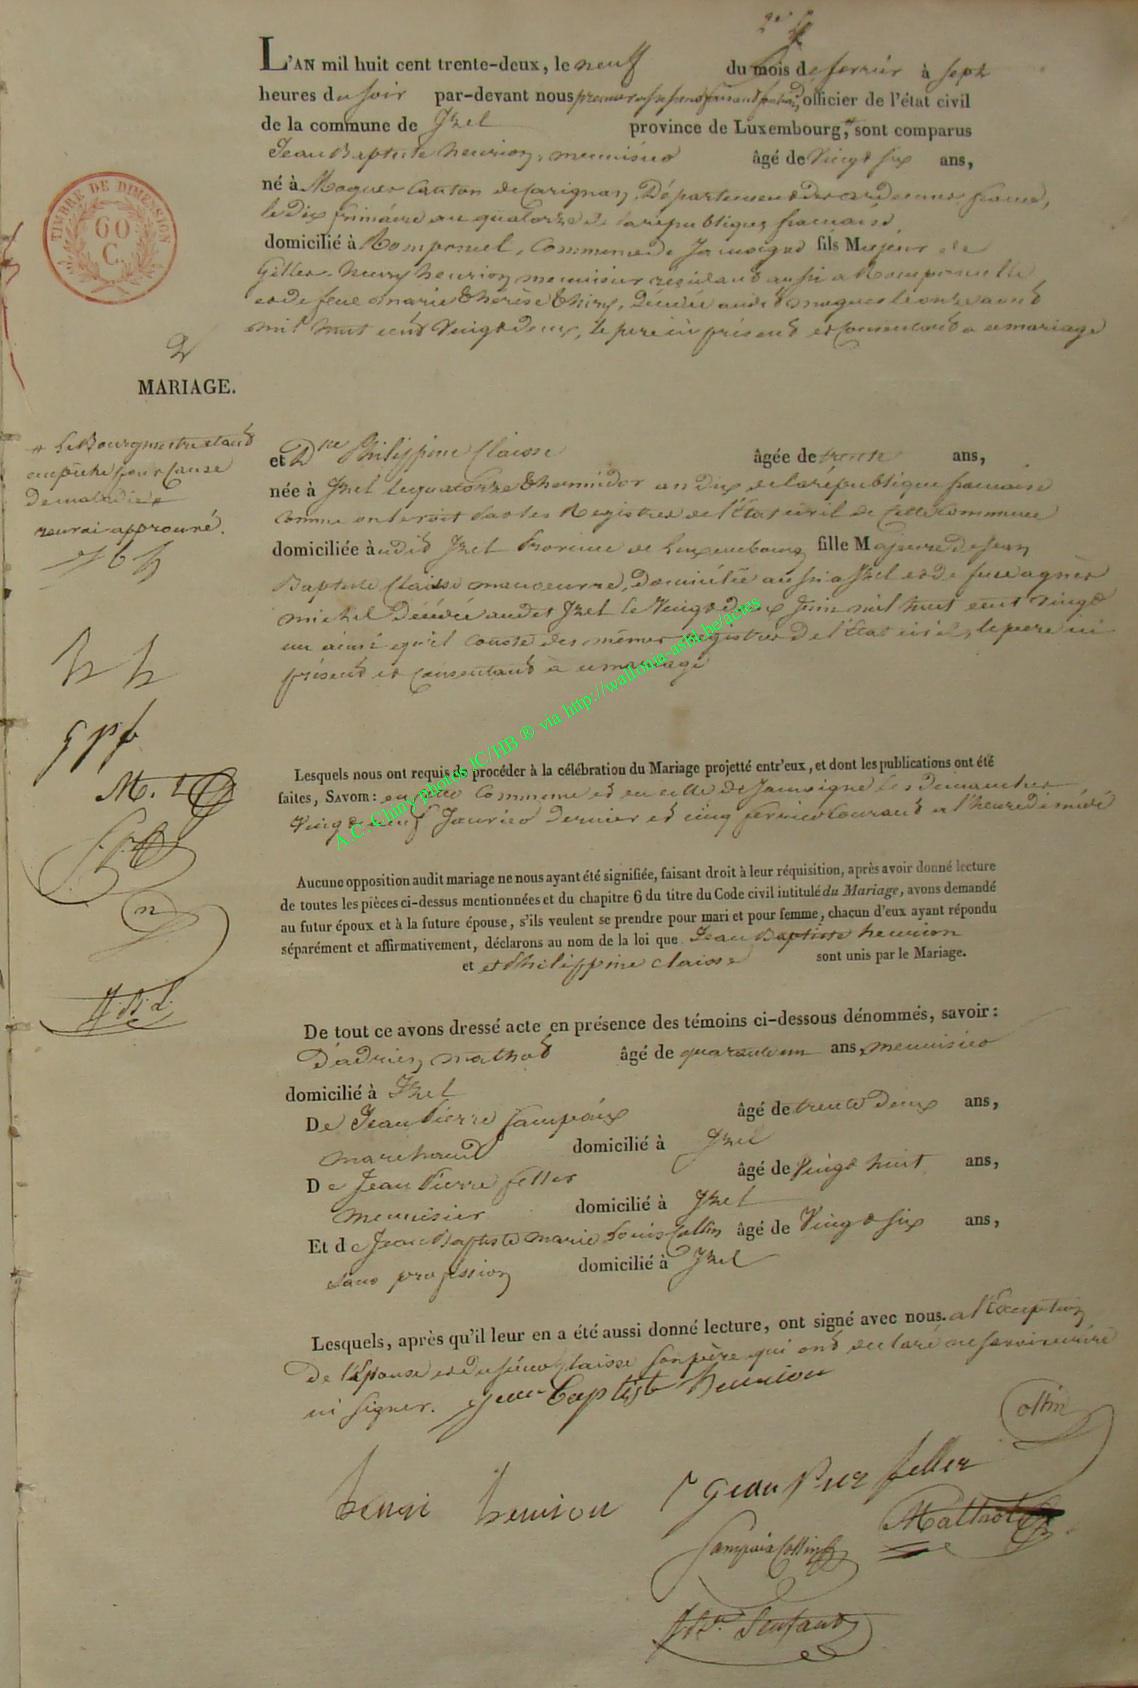 L'AN mil huit cent trente-deux, le neuf du mois de fevrier à sept
heures du soir par-devant nous officier de l'état civil
de la commune de Izel province de Luxembourg, sont comparus
Jean Baptiste henrion, menuisier âgé de Vingt six ans,
né à Mogues Canton de Carignan, Département des ardennes france,
le dix frimaire an quatorze de la république francaise
domicilié à Romponcel, Commune de Jamoigne fils Majeur de
Gilles henry henrion menuisier residant aussi a Romponcelle
et de feue marie thérèse thiry, Décédée audit mogues le onze aout
mil huit cent Vingt deux, le pere ici présent et consentant a ce mariage
TIMBRE DE DIMENSION
60
C.
2
MARIAGE.
Le Bourgmestre etant
empêché pour cause
de maladie
renvoi approuvé.
h h
g p f
M.
n
et Dlle Philippine Claisse âgée de trente ans,
née à Izel le quatorze thermidor an dix de la république francaise
comme on le voit par les Registres de l'Etat civil de cette commune
domiciliée audit Izel Province de Luxembourg fille Majeure de Jean
Baptiste Claisse manoeuvre, domicilié aussi a Izel et de feue agnès
michel Décédée audit Izel le Vingt deux Juin mil huit cent vingt
un ainsi qu'il conste des mêmes registres de l'Etat civil, le pere ici
présent et consentant à ce mariage
A.C. Chiny Photos JC/HB ® via http://wallonia-asbl.be/actes
Lesquels nous ont requis de procéder à la célébration du Mariage projetté entr'eux, et dont les publications ont été
faites, SAVOIR: en cette Commune et en celle de Jamoigne les Dimanches
Vingt neuf Janvier dernier et cinq fevrier courant a l'heure de midi
Aucune opposition audit mariage ne nous ayant été signifiée, faisant droit à leur réquisition, après avoir donné lecture
de toutes les pièces ci-dessus mentionnées et du chapitre 6 du titre du Code civil intitulé du Mariage, avons demandé
au futur époux et à la future épouse, s'ils veulent se prendre pour mari et pour femme, chacun d'eux ayant répondu
séparément et affirmativement, déclarons au nom de la loi que Jean Baptiste henrion
et et Philippine claisse sont unis par le Mariage.
De tout ce avons dressé acte en présence des témoins ci-dessous dénommés, savoir:
D'adrien mathot âgé de quarante un ans, menuisier
domicilié à Izel
De Jean Pierre Lampaix âgé de trente Deux ans,
marchand domicilié à Izel
De Jean Pierre feller âgé de Vingt huit ans,
menuisier domicilié à Izel
Et de Jean Baptiste marie Louis Collin âgé de Vingt six ans,
sans profession domicilié à Izel
Lesquels, après qu'il leur en a été aussi donné lecture, ont signé avec nous. a l'Exception
De l'épouse et du sieur Claisse son père qui ont declaré ne savoir ecrire
ni signer. Jean Baptiste henrion
ollin
henri henrion
Jean Pier feller
Mathot